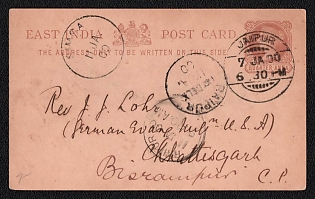 EAST INDIA POST CARD
THE ADDRESS ONLY TO BE WRITTEN ON THIS SIDE
JAIPUR
7 JA 00
6 30 PM
RAIPUR
Rev. J. J. Lohr
(German Evang. Miss. U.S.A)
Chhattisgarh
Bisrampur
C.P.